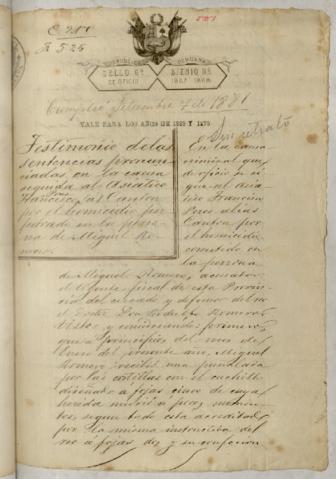 521
C 280
R 526
REPUBLICA PERUANA
SELLO 6º
DE OFICIO
BIENIO DE
1867 1868
Cumplió Setiembre 7 de 1881
VALE PARA LOS AÑOS DE 1869 Y 1870
Sin retrato
Testimonio de las
sentencias pronun-
ciadas en la causa
seguida al Asiatico
Francisco Poses (as) Canton
por el homicidio per-
petrado en la perso-
na de Miguel Ro-
mero.
En la causa
criminal que
de oficio se si-
gue al asia-
tico Francisco
Poses alias
Canton por
el homicidio
cometido en
la persona
de Miguel Romero, acusador
el Ajente fiscal de esta Provin-
cia del cercado y defensor del reo
el Doctor Don
Vistos; y considerando: primero
que a principios del mes de
Enero del presente año, Miguel
Romero recibió una puñalada
por las costillas con el cuchillo
diseñado a fojas cinco de cuya
herida murió a pocos momen-
tos, segun todo está acreditado
por la misma instructiva del
reo á fojas diez y su confesion